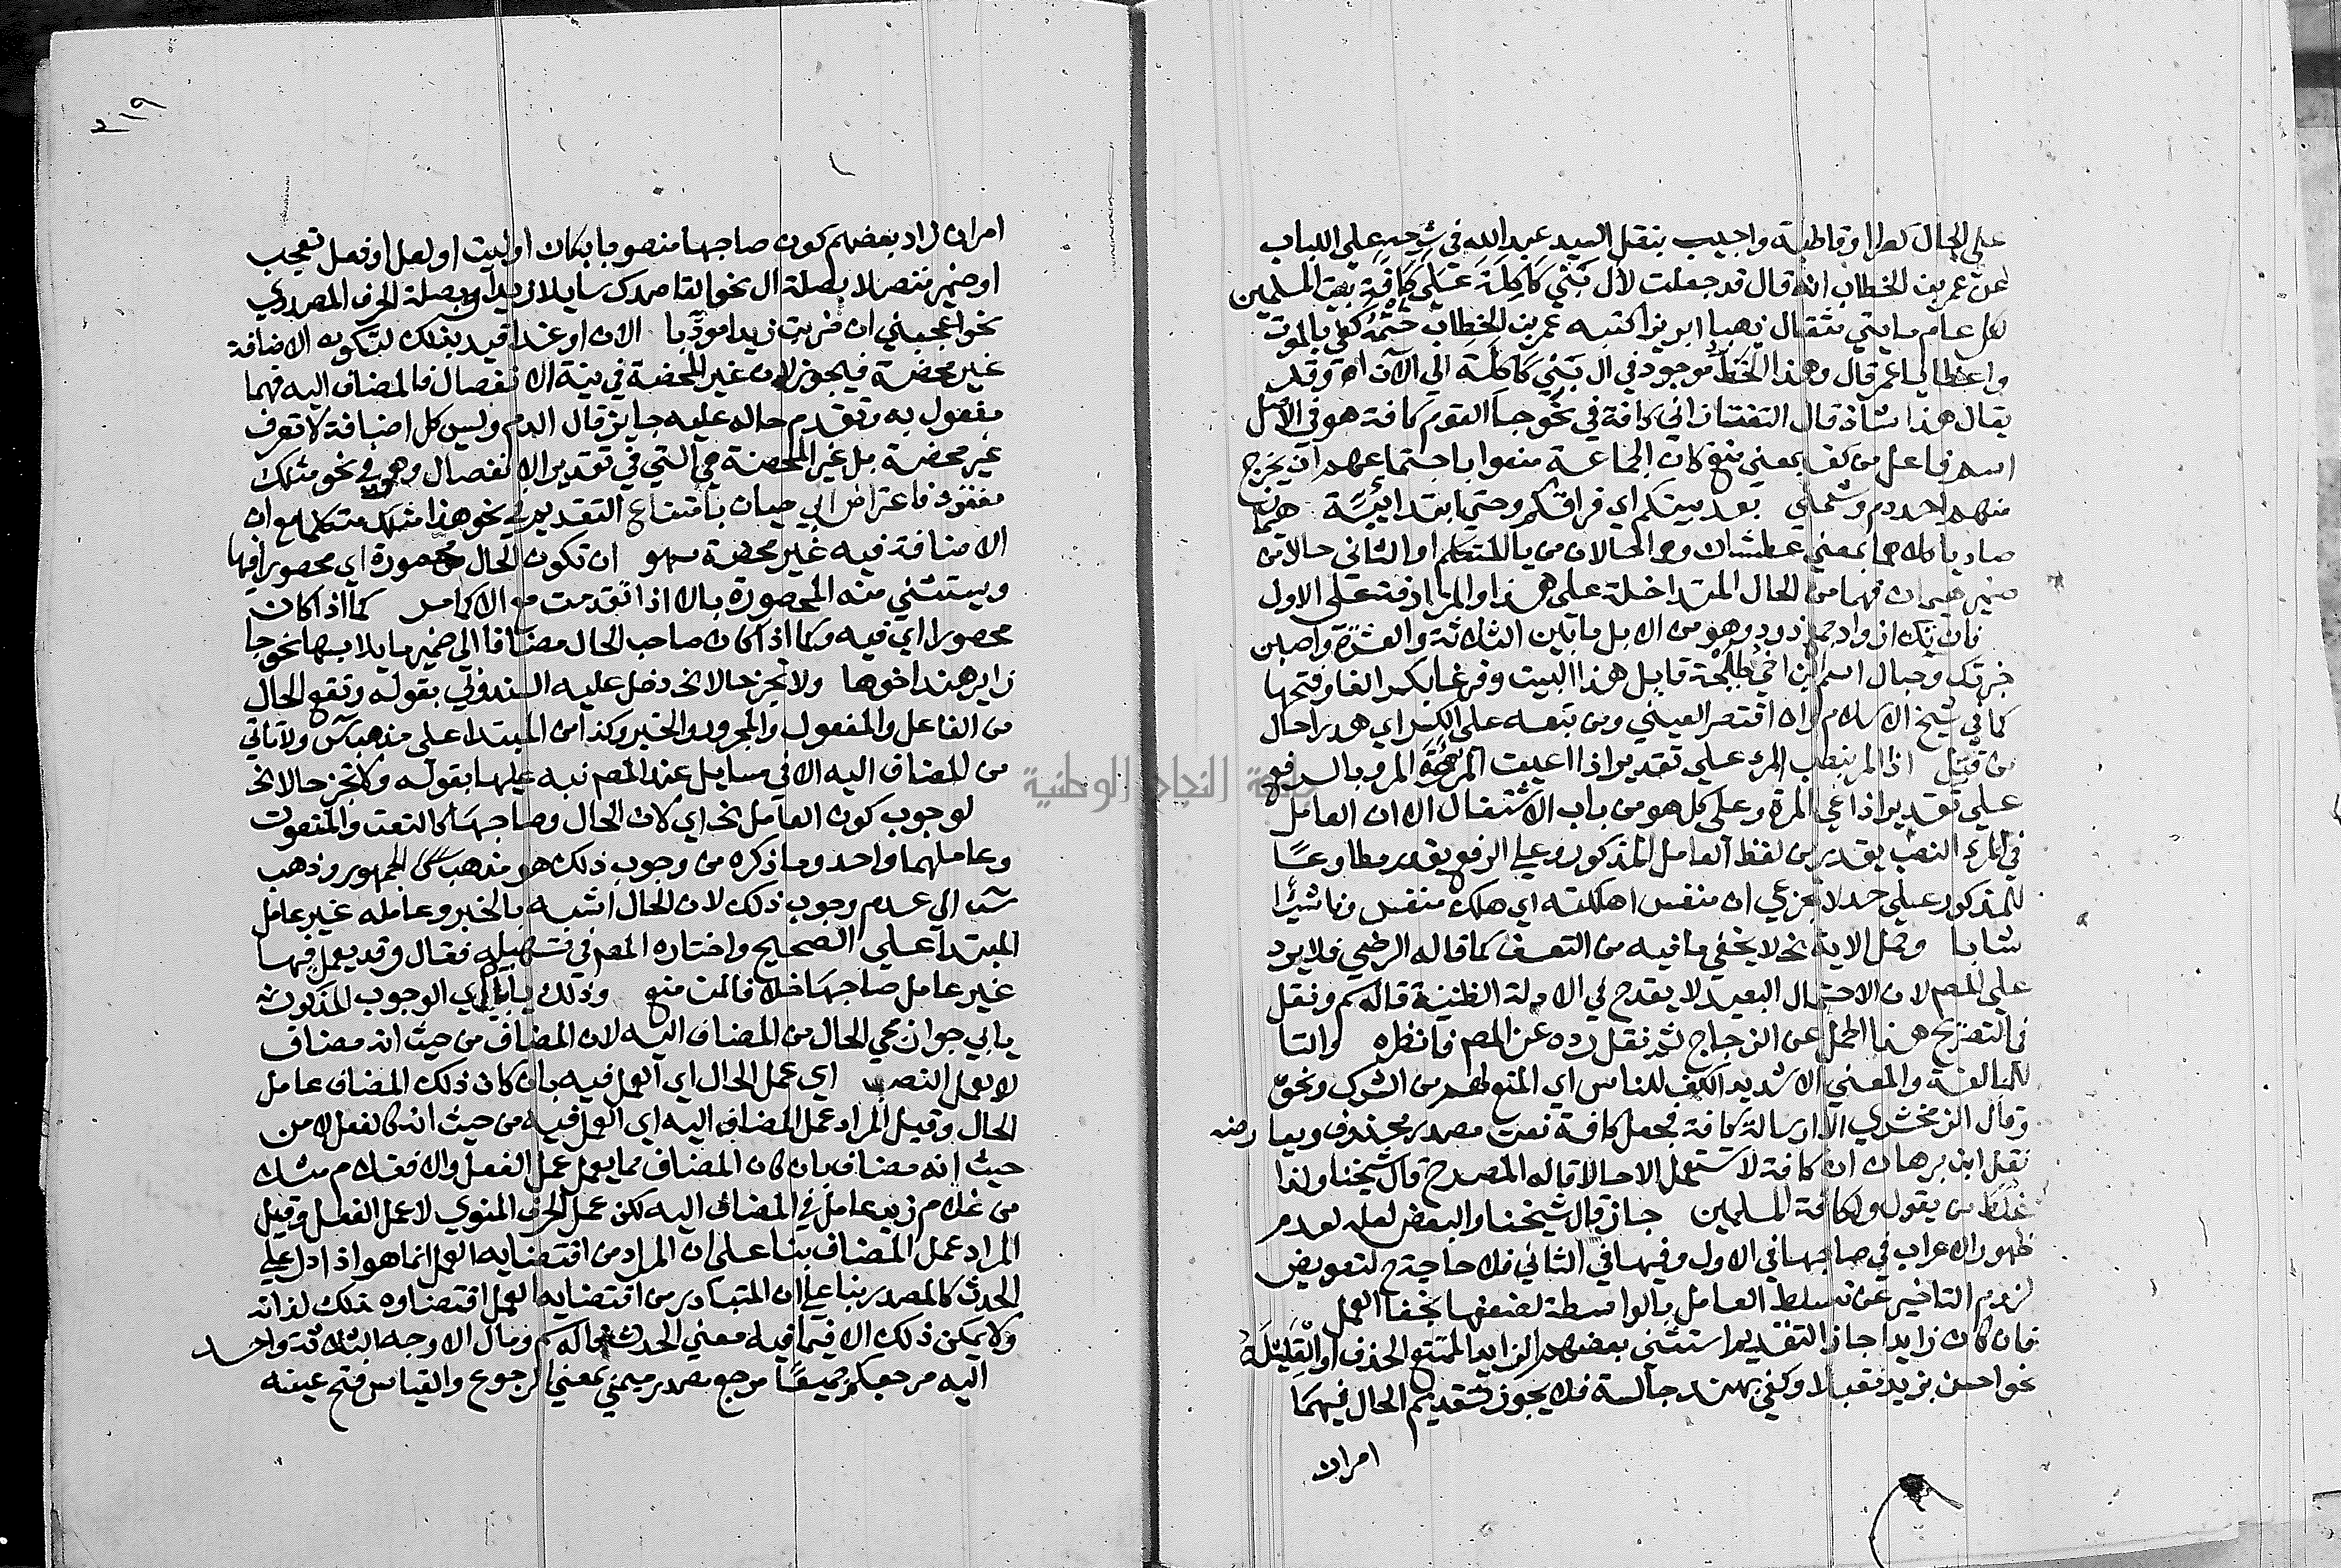 على الحال كطرا وقاطبة واجيب بنقل السيد عبد الله في شرحه على اللباب
عن عمر بن الخطاب انه قال قد جعلت لال بني كاكلة على كافة بيت المسلمين
لكل عام مايتي مثقال ذهبا ابريزا كتبه عمر بن الخطاب ختمه كفى بالموت
واعظا يا عمر قال وهذا الخط موجود في ال بني كاكلة الي الآن اه وقد
يقال هذا شاذ قال التفتازاني كافة في نحو جا القوم كافة هو في الاصل
اسم فاعل من كف بمعني منع كان الجماعة منعوا باجتماعهم ان يخرج
منهم احد دم وشملي بعد بينكم اي فراقكم وحتى ابتدائية هيمان
صاديا كلاهما بمعني عطشان وهما حالان من ياء المتكلم او الثاني حالا من
ضمير هيمان فهما من الحال المتداخلة على هذا والمترادفة على الاول
فان تك اذواد جمع ذود وهو من الابل ما بين الثلاثة والعشرة واصبن
خبر تك وحبال اسم ابن اخي طليحة قايل هذا البيت وفرغا بكسر الفا وفتحها
كما في شيخ الاسلام وان اقتصر العيني ومن تبعه على الكسر اي هدرا حال
من قتل اذا المرء ينصب المرء على تقدير اذا اعيت المروءة المرء وبالرفع
على تقدير اذا عي المرء وعلى كل هو من باب الاشتغال الا ان العامل
في المرء النصب يقدر من لفظ العامل المذكور وعلى الرفع يقدر مطاوعا
للمذكور على حد لا تجزعي ان منفس اهلكته اي هلك منفس وناشيا
شابا وحمل الاية نخ لا يخفى ما فيه من التعسف كما قاله الرضي فلا يرد
على المصم لان الاحتمال البعيد لا يقدح في الادلة الظنية قاله سم ونقل
في التصريح هذا الحمل عن الزجاج ثم نقل رده عن المصم فانظره والتا
للمبالغة والمعني الا شديد الكف للناس اي المنع لهم من الشرك ونحوه
وقال الزمخشري الا ارسالة كافة فجعل كافة نعت مصدر محذوف ويعارضه
نقل ابن برهان ان كافة لا تستعمل الا حالا قاله المصرح قال شيخنا ولذا
غلط من يقول ولكافة المسلمين جاز قال شيخنا والبعض لعله لعدم
ظهور الاعراب في صاحبها في الاول وفيها في الثاني فلا حاجة ح لتعويض
لزوم التاخير عن تسلط العامل بالواسطة لضعفها بخفا العمل
فان كان زايدا جاز التقديم استثنى بعضهم الزايد الممتنع الحذف او القليلة
نحو احسن بزيد مقبلا وكفى بهند جالسة فلا يجوز تقديم الحال فيهما
امران
٢١٩
امران زاد بعضهم كون صاحبها منصوبا بكان او ليت او لعل او فعل تعجب
او ضمير متصلا بصلة ال نحو القاصدك سايلا زيد او بصلة الحرف المصدري
نحو اعجبني ان ضربت زيدا مؤدبا الان او غدا قيد بذلك لتكون الاضافة
غير محضة فيجوز لان غير المحضة في نية الانفصال فالمضاف اليه فيها
مفعول به وتقدم حاله عليه جايز قال الدم وليس كل اضافة لا تعرف
غير محضة بل غير المحضة هي التي في تقدير الانفصال وهو في نحو مثلك
مفقود فاعتراض ابي حيان بامتناع التقديم في نحو هذا مثلك متكلما مع ان
الاضافة فيه غير محضة سهو ان تكون الحال محصورة اي محصورا فيها
ويستثني منه المحصورة بالا اذا تقدمت مع الا كما مر كما اذا كان
محصورا اي فيه وكما اذا كان صاحب الحال مضافا الى ضمير ما يلابسها نحو جا
زاير هند اخوها ولا تجز حالا نخ دخل عليه السندوبي بقوله وتقع الحال
من الفاعل والمفعول والمجرور والخبر وكذا من المبتدا على مذهب س ولا تاتي
من المضاف اليه الا في مسايل عند المصم نبه عليها بقوله ولا تجز حالا نخ
لوجوب كون العامل نخ اي لان الحال وصاحبها كالنعت والمنعوت
وعاملهما واحد وما ذكره من وجوب ذلك هو مذهب الجمهور وذهب
س الي عدم وجوب ذلك لان الحال اشبه بالخبر وعامله غير عامل
المبتدا على الصحيح واختاره المصم في تسهيله فقال وقد يعمل فيها
غير عامل صاحبها خلافا لمن منع وذلك يابى اي الوجوب المذكور
يابي جواز مجي الحال من المضاف اليه لان المضاف من حيث انه مضاف
لا يعمل النصب اي عمل الحال اي العمل فيه بان كان ذلك المضاف عامل
الحال وقيل المراد عمل المضاف اليه اي العمل فيه من حيث انه كالفعل لا من
حيث انه مضاف بان كان المضاف مما يعمل عمل الفعل والا فغلام مثلا
من غلام زيد عامل في المضاف اليه لكن عمل الحرف المنوي لا عمل الفعل وقيل
المراد عمل المضاف بنا على ان المراد من اقتضايه العمل انما هو اذا دل على
الحدث كالمصدر بنا على ان المتبادر من اقتضايه العمل اقتضاوه ذلك لذاته
ولا يمكن ذلك الا فيما فيه معني الحدث قاله سم ومال الاوجه الثلاثة واحد
اليه مرجعكم جميعا مرجع مصدر ميمي بمعني الرجوع والقياس فتح عينه
جامعة النجاح الوطنية